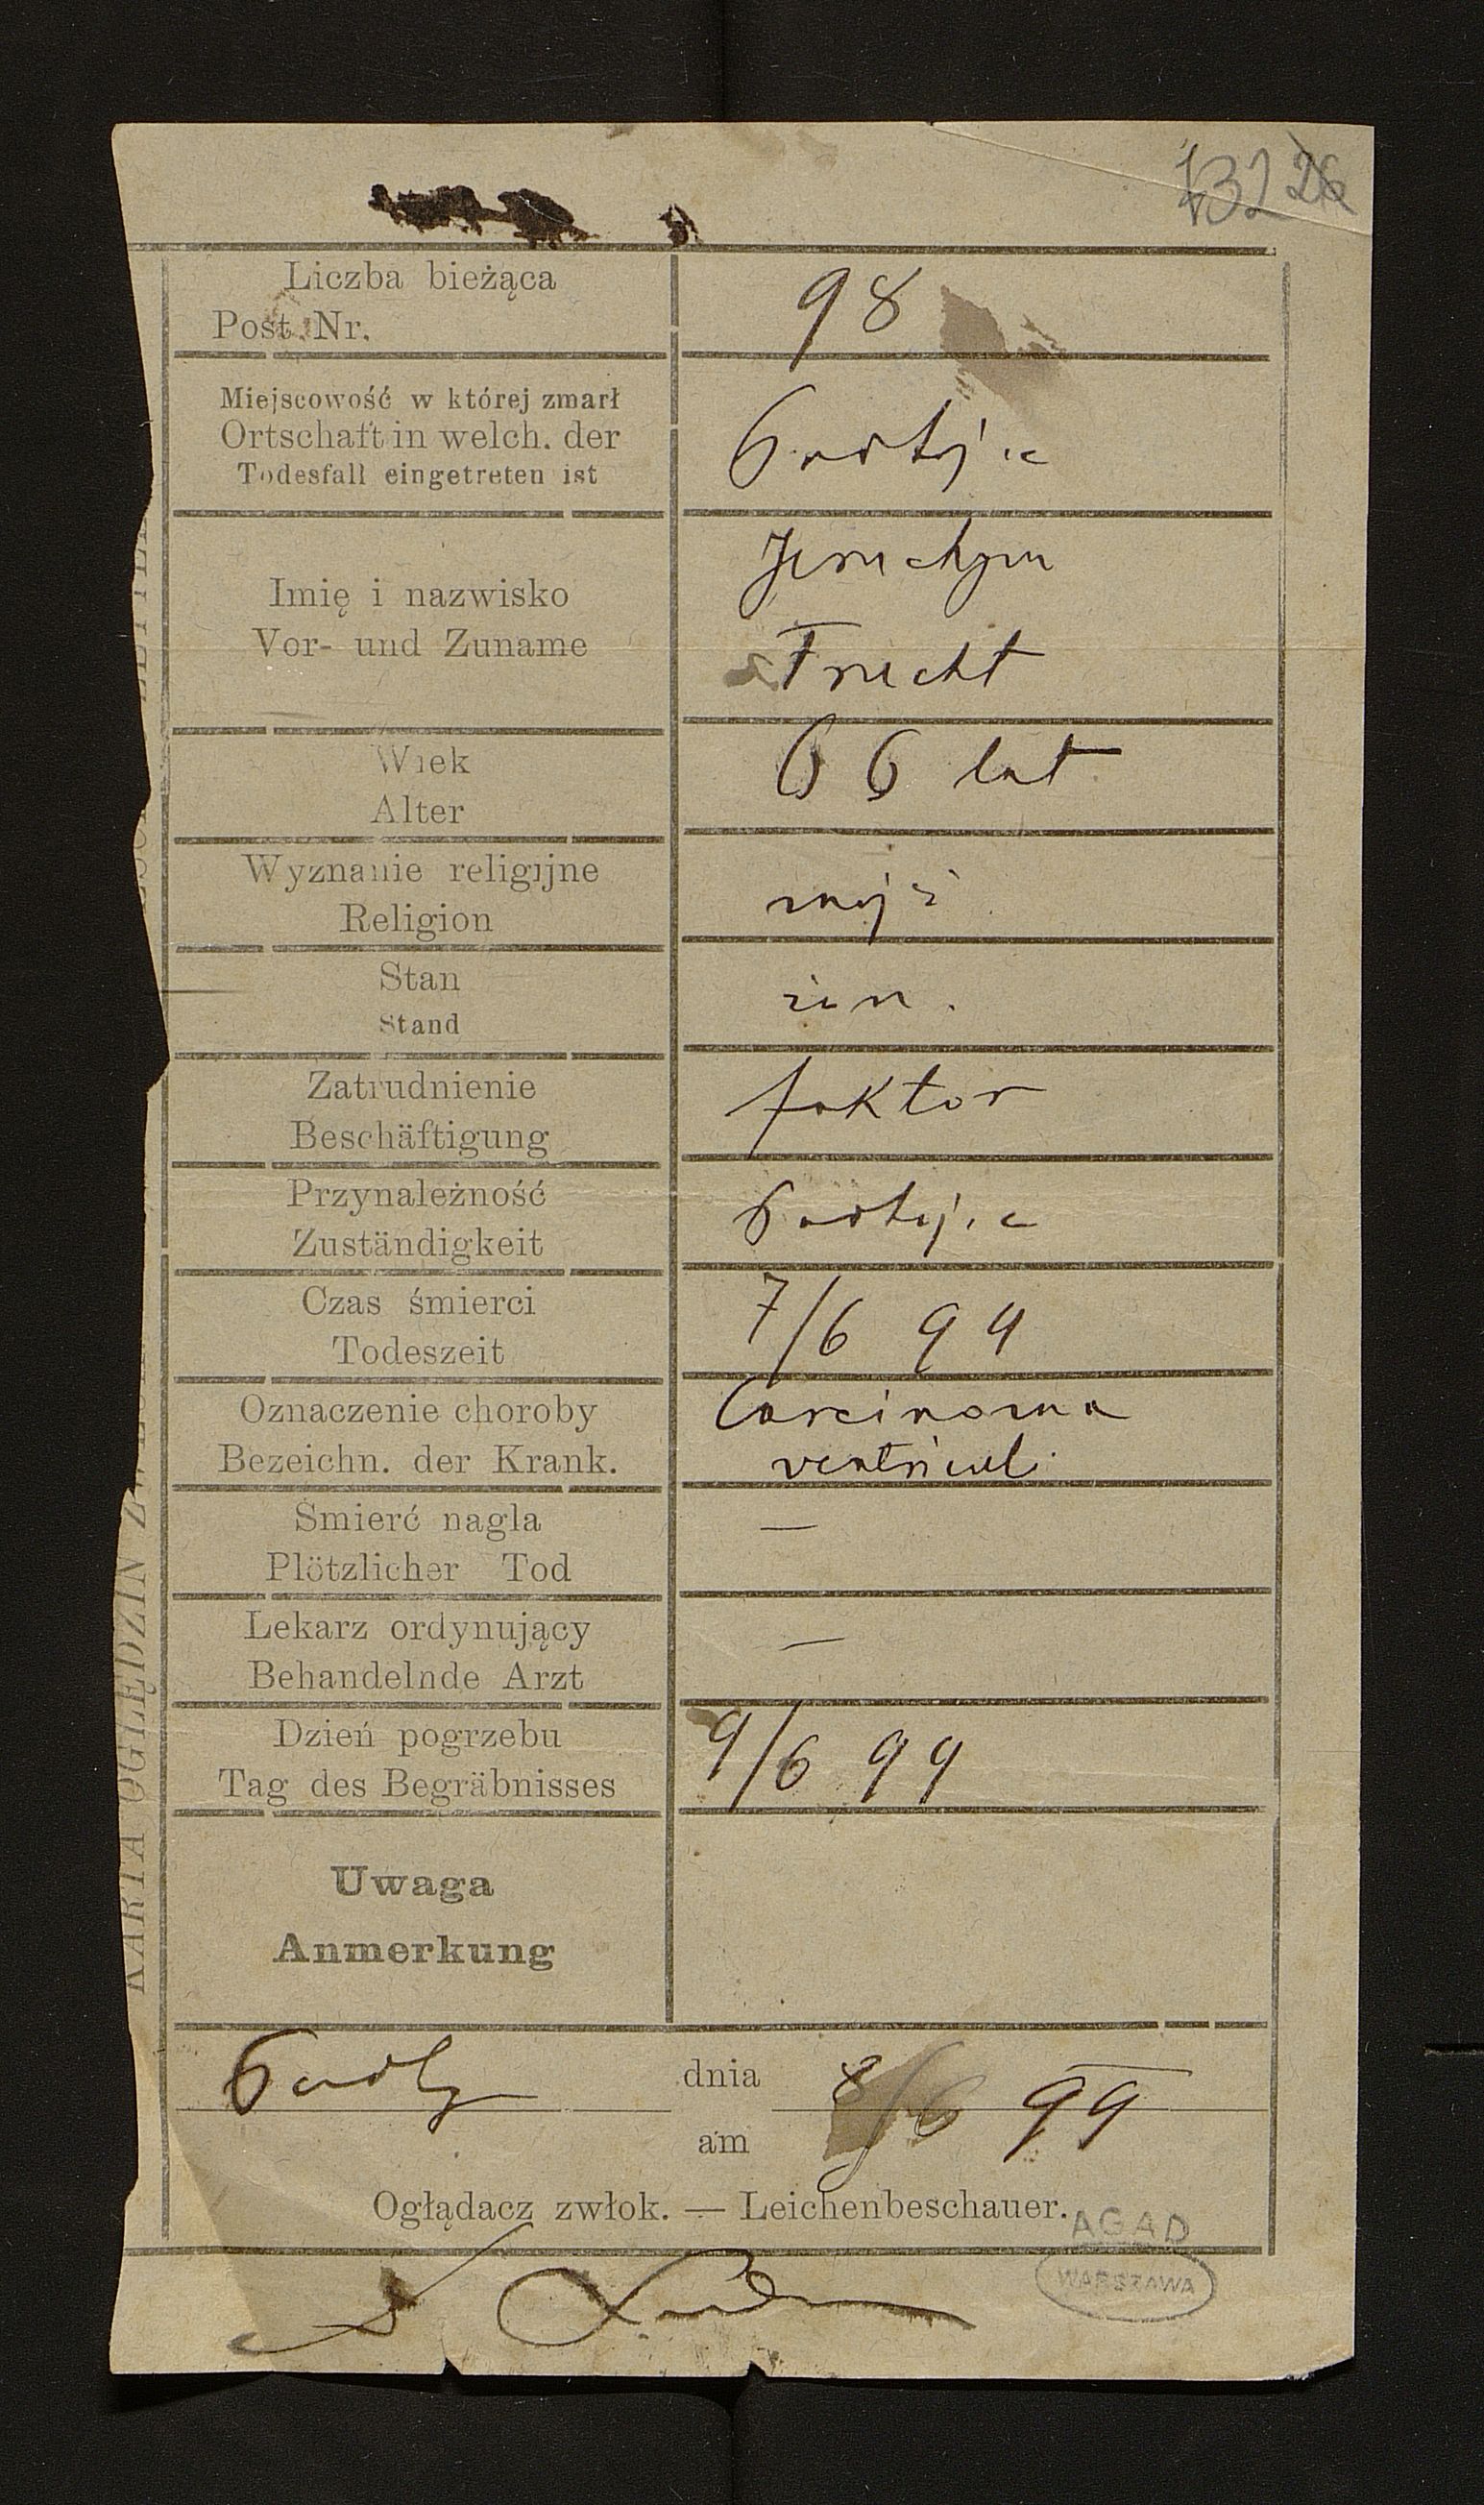 132 26
Liczba bieżąca
Post. Nr.
98
Miejscowość w której zmarł
Ortschaft in welch. der
Todesfall eingetreten ist
Imię i nazwisko
Vor- und Zuname
Jeruchym
Frucht
Wiek
Alter
66 lat
Wyznanie religijne
Religion
mojż
Stan
Stand
żon.
Zatrudnienie
Beschäftigung
faktor
Przynależność
Zuständigkeit
Czas śmierci
Todeszeit
7/6 99
Oznaczenie choroby
Bezeichn. der Krank.
Carcinoma
ventriculi
Śmierć nagla
Plötzlicher Tod
—
Lekarz ordynujący
Behandelnde Arzt
—
Dzień pogrzebu
Tag des Begräbnisses
9/6 99
Uwaga
Anmerkung
dnia
am
8/6 99
Oglądacz zwłok. — Leichenbeschauer.
AGAD
WARSZAWA
KARTA OGLĘDZIN